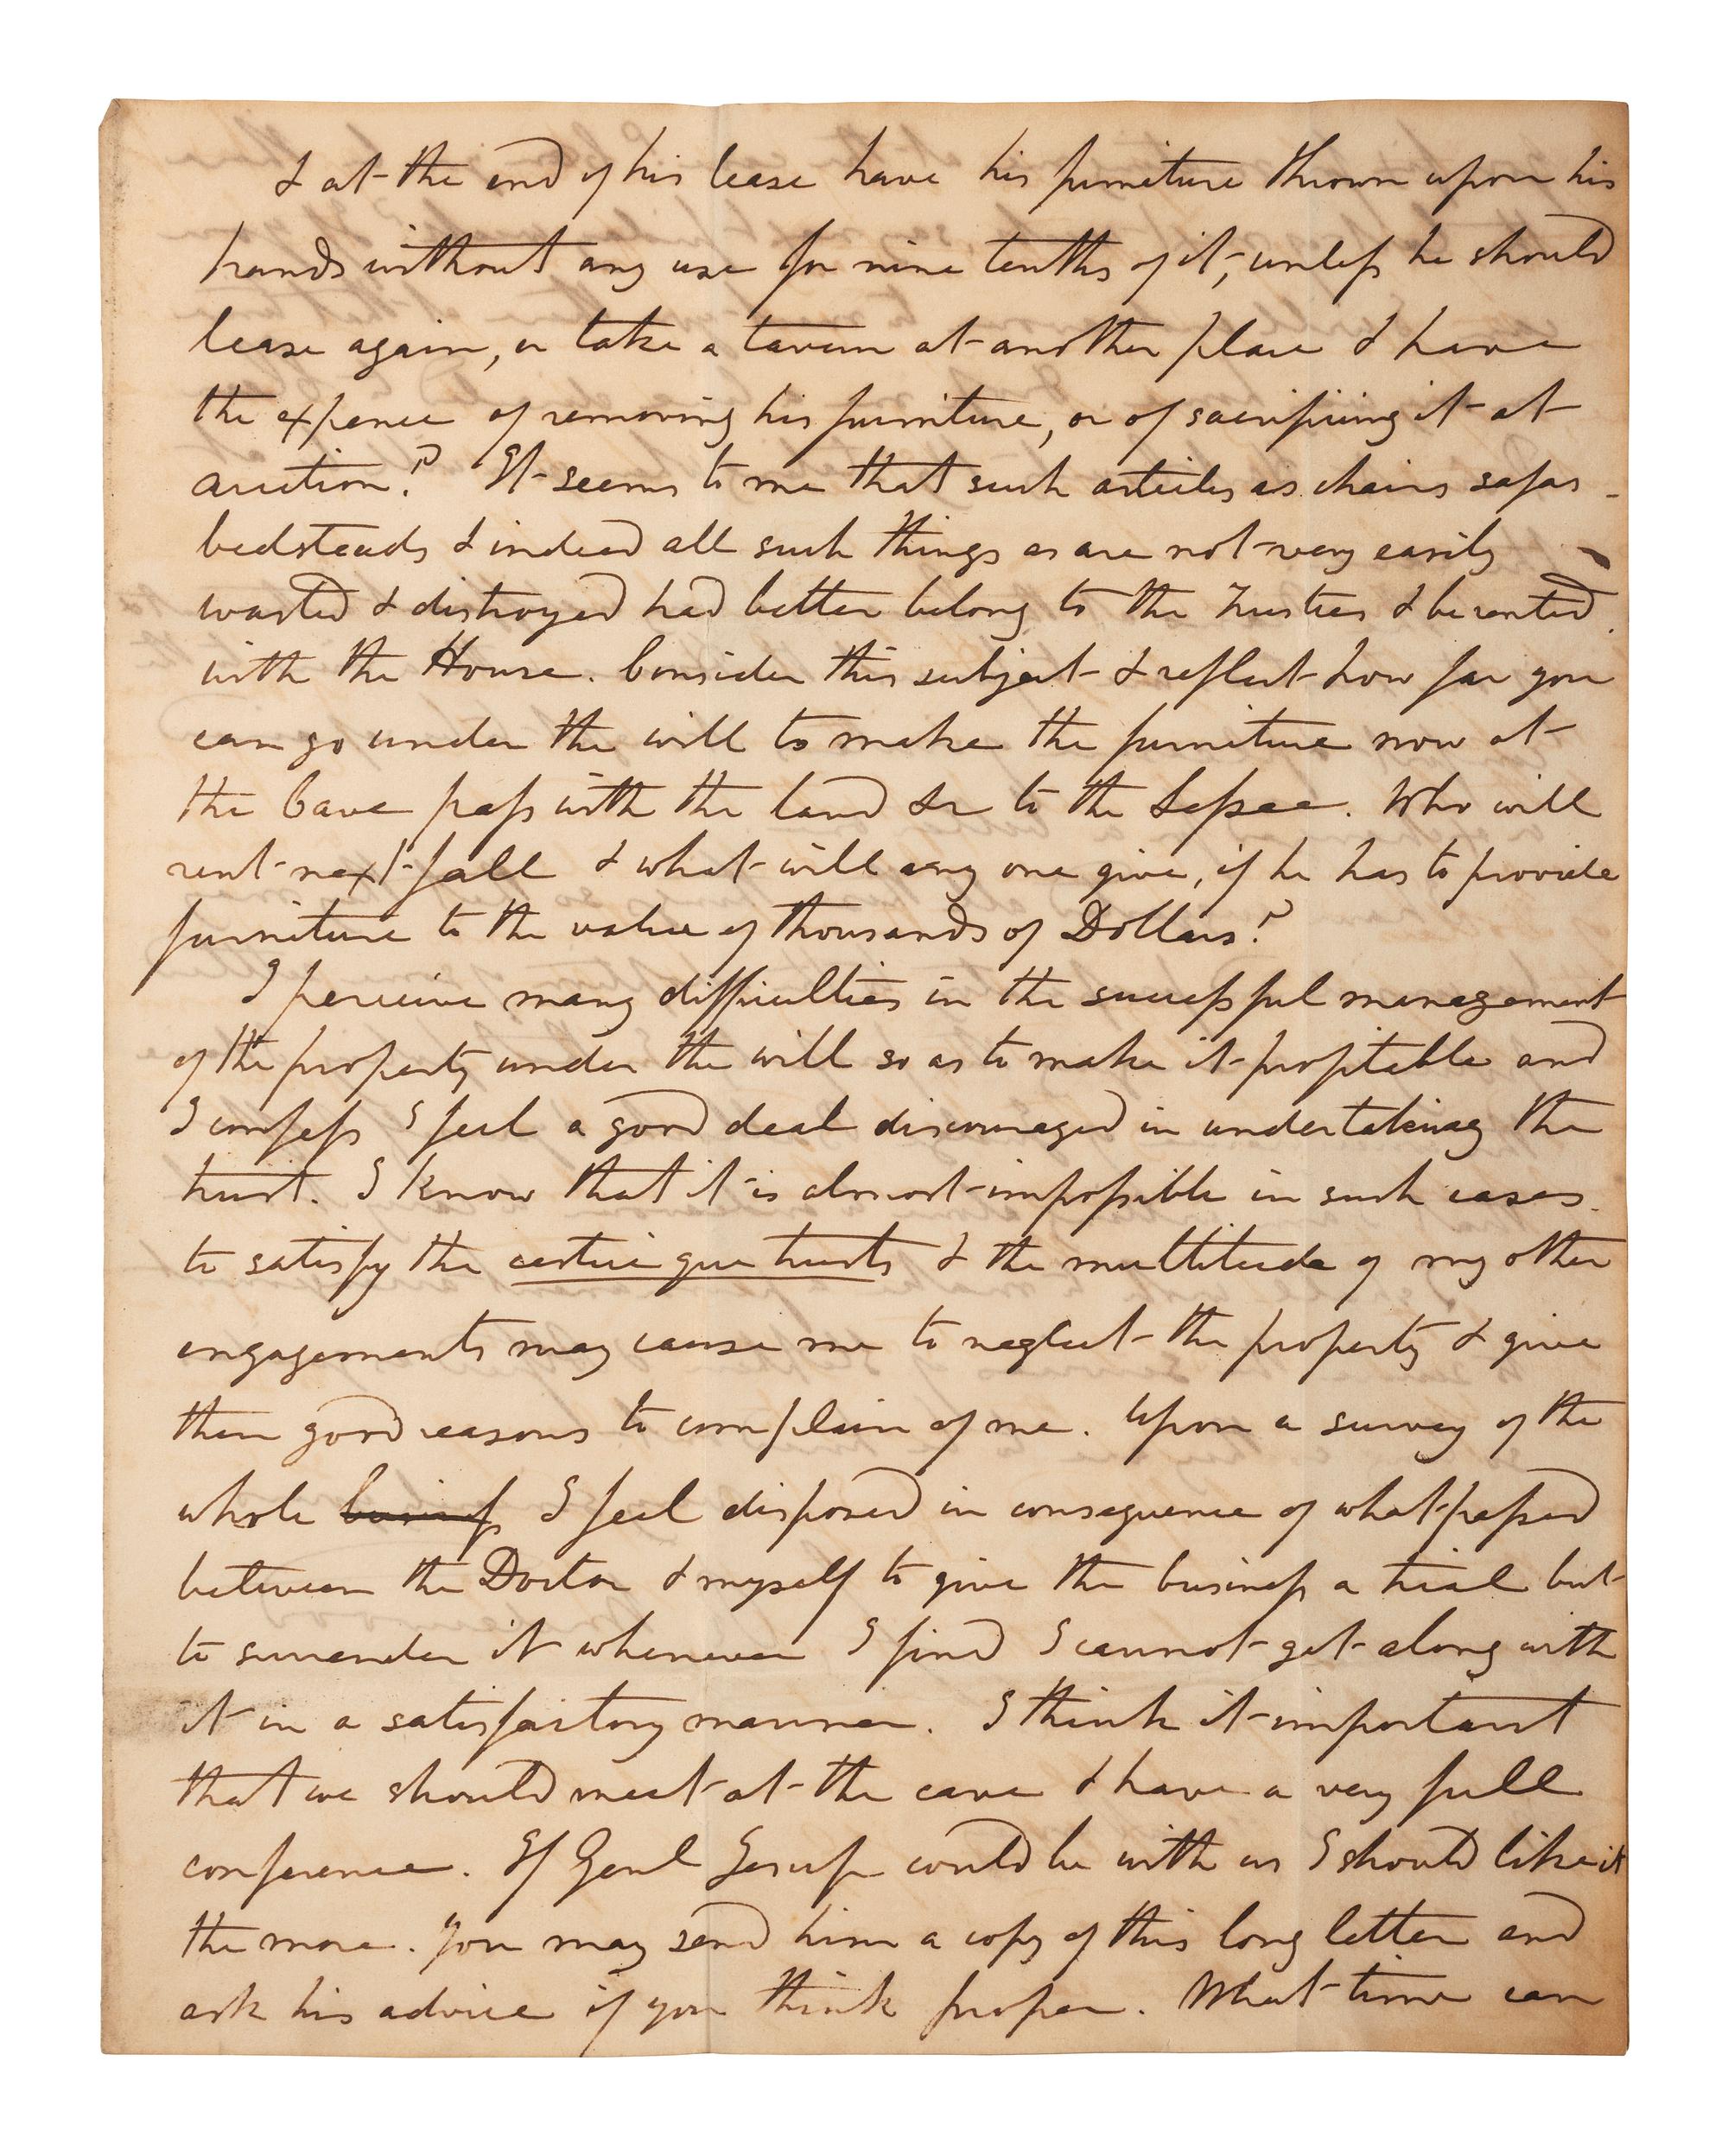 & at the end of his lease have his furniture thrown upon his
hands without any use for nine tenths of it, unless he should
lease again, or take a tavern at another place & have
the expence of removing his furniture, or of sacrificing it at
auction? It seems to me that such articles as chairs sofas
bedsteads & indeed all such things as are not very easily
wasted & distroyed had better belong to the Trustees & be rented
with the House. Consider this subject & reflect how far you
can go under the will to make the furniture now at
the Cave pass with the land &c to the Lessee. Who will
rent next fall & what will any one give, if he has to provide
furniture to the value of thousands of Dollars?
I perceive many difficulties in the successful management
of the property under the will so as to make it profitable and
I confess I feel a good deal discouraged in undertaking the
trust. I know that it is almost impossible in such cases
to satisfy the cestui que trusts & the multitude of my other
engagements may cause me to neglect the property & give
them good reasons to complain of me. Upon a survey of the
whole business I feel disposed in consequence of what passed
between the Doctor & myself to give the business a trial but
to surrender it whenever I find I cannot get along with
it in a satisfactory manner. I think it important
that we should meet at the cave & have a very full
conference. If Genl Jesup could be with us I should like it
the more. You may send him a copy of this long letter and
ask his advice if you think proper. What time can